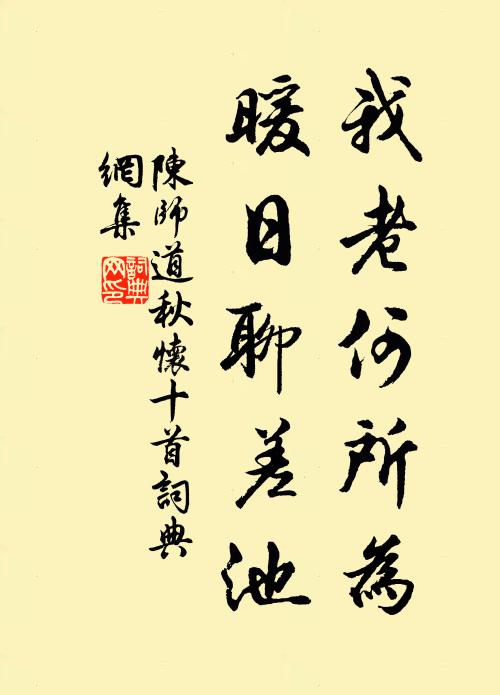 我老何所為
暖日聊差池
陳師道秋懷十首詞典
網集
詞典網印